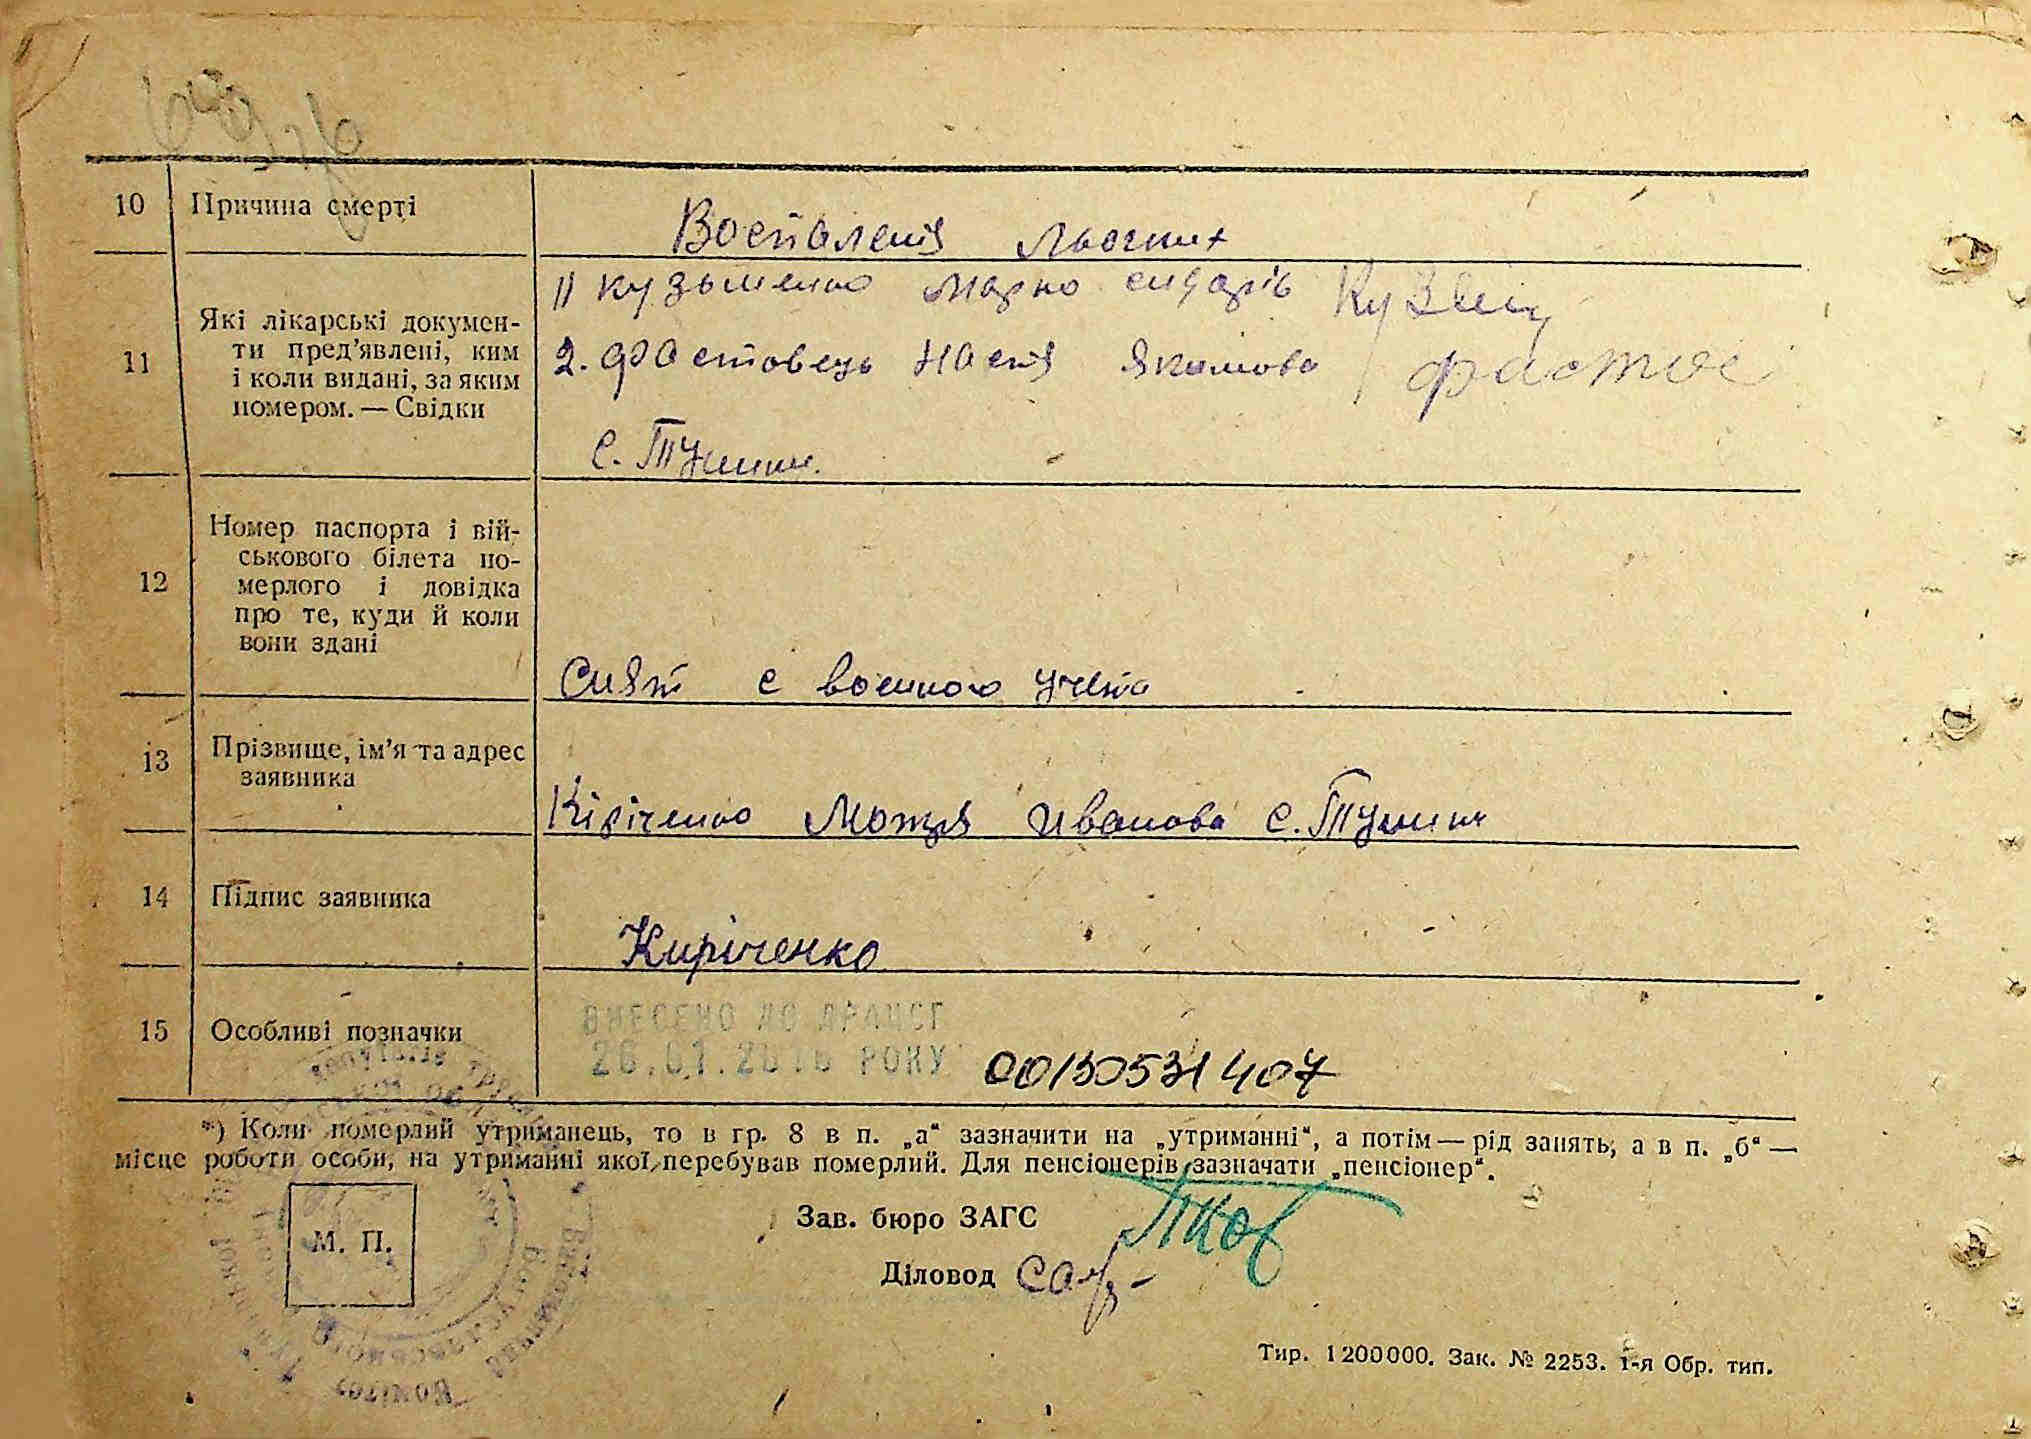 10 Причина смерті Воспаления льогких
11 Які лікарські докумен-
ти пред'явлені, ким
і коли видані, за яким
номером. — Свідки
1) Кузьменко Марко сидарів Кузьм
2. Фастовець Настя Якимова / Фастов
с. Тушки.
12 Номер паспорта і вій-
ськового білета по-
мерлого і довідка
про те, куди й коли
вони здані
Снят с военного учета
13 Прізвище, ім'я та адрес
заявника
Кіріченко Мотря Иванова с. Тушки
14 Підпис заявника Киріченко
15 Особливі позначки
ВНЕСЕНО ДО ДРАЦСГ
26.01.2010 РОКУ 00130531407
*) Коли померлий утриманець, то в гр. 8 в п. „а“ зазначити на „утриманні“, а потім — рід занять, а в п. „б“ —
місце роботи особи, на утриманні якої перебував померлий. Для пенсіонерів зазначати „пенсіонер“.
М. П.
Зав. бюро ЗАГС
Діловод
Тир. 1200000. Зак. № 2253. 1-я Обр. тип.